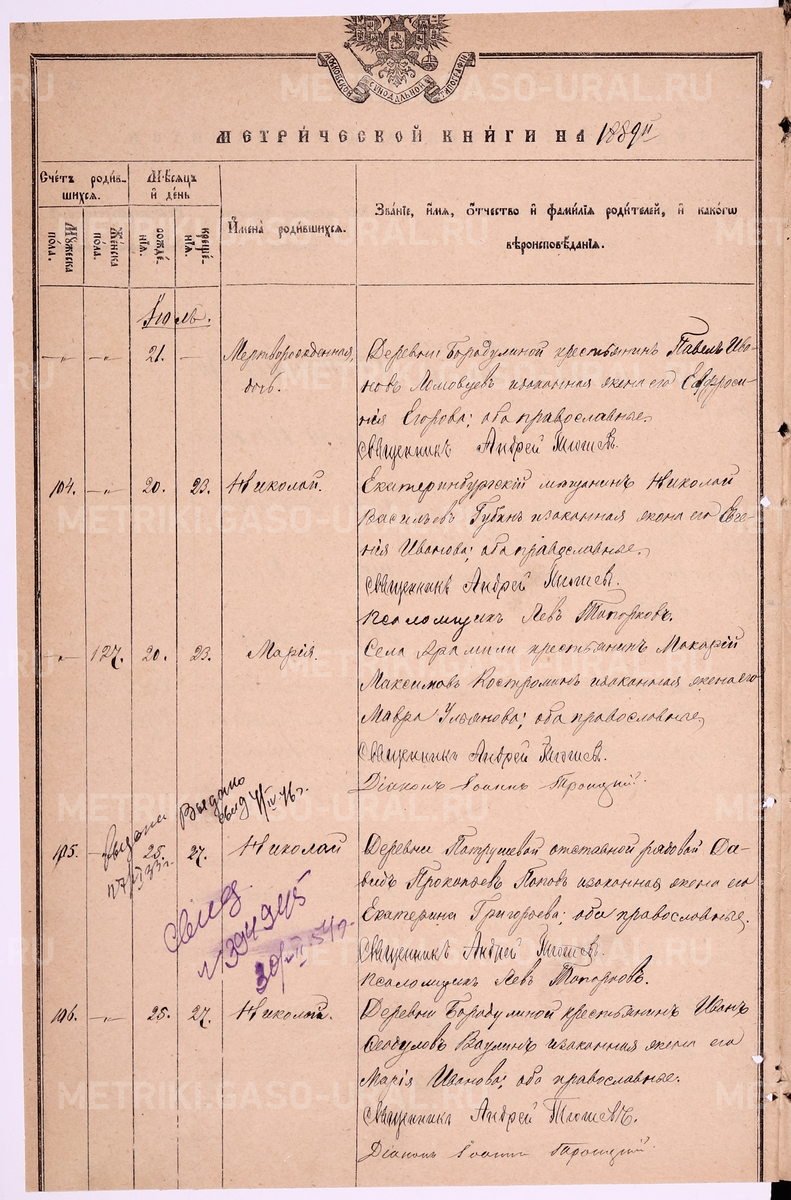 МОСКОВСКОЙ СѴНОДАЛЬНОЙ ТИПОГРАФІИ
МЕТРИ́ЧЕСКОЙ КНИ́ГИ НА 1889й
Сче́тъ роди́вшихся.
Мѣ́сяцъ и де́нь
Имена̀ роди́вшихся.
Зва́нїе, и́мя, о́тчество и фами́лїя роди́телей, и како́гѡ вѣроисповѣ́данїя.
Му́жеска по́ла.
Же́нска по́ла.
рожде́нїя.
креще́нїя.
Іюль.
-"- -"- 21. — Мертворожденная дочь.
Деревни Бородулиной крестьянинъ Павелъ Ива-
новъ Ломовцев и законная жена его Евфроси-
нія Егорова; оба православные.
Священникъ Андрей
104. -"- 20. 23. Николай.
Екатеринбургскій мѣщанинъ Николай
Васильевъ Губинъ и законная жена его Евге-
нія Иванова; оба православные.
Священникъ Андрей
Псаломщикъ Левъ Топорковъ.
-"- 127. 20. 23. Марія.
Села Арамили крестьянинъ Макарій
Максимовъ Костроминъ и законная жена его
Мавра Ульянова; оба православные,
Священникъ Андрей
Діаконъ Іоаннъ Троицкій.
Выдано
Выдана
105. -"- 25. 27. Николай
Деревни Патрушевой отставной рядовой Да-
видъ Прокопьевъ Поповъ и законная жена его
Екатерина Григорьева; оба православные.
Священникъ Андрей
Псаломщикъ Левъ Топорковъ.
106. -"- 25. 27. Николай.
Деревни Бородулиной крестьянинъ Иванъ
Ѳеодуловъ Ваулинъ и законная жена его
Марія Иванова; оба православные.
Священникъ Андрей
Діаконъ Іоаннъ Троицкій
METRIKI.GASO-URAL.RU